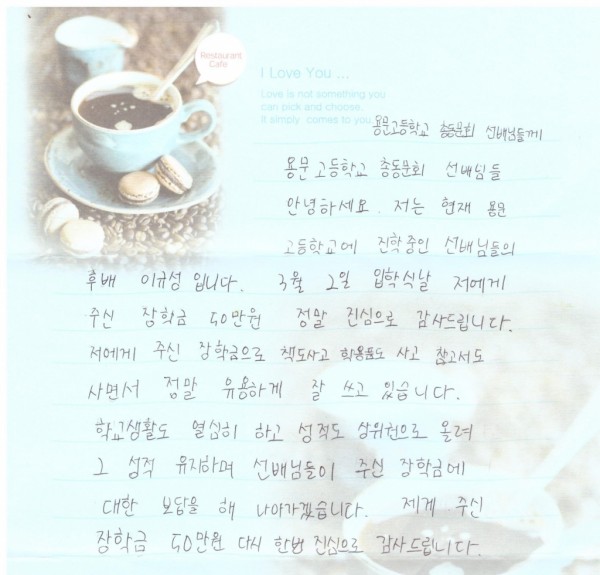 Restaurant
Cafe
I Love You ...
Love is not something you
can pick and choose.
It simply comes to you
용문고등학교 총동문회 선배님들께
용문 고등학교 총동문회 선배님들
안녕하세요. 저는 현재 용문
고등학교에 진학중인 선배님들의
후배 이규성 입니다. 3월 2일 입학식날 저에게
주신 장학금 50만원 정말 진심으로 감사드립니다.
저에게 주신 장학금으로 책도사고 학용품도 사고 참고서도
사면서 정말 유용하게 잘 쓰고 있습니다.
학교생활도 열심히 하고 성적도 상위권으로 올려
그 성적 유지하며 선배님들이 주신 장학금에
대한 보답을 해 나아가겠습니다. 제게 주신
장학금 50만원 다시 한번 진심으로 감사드립니다.